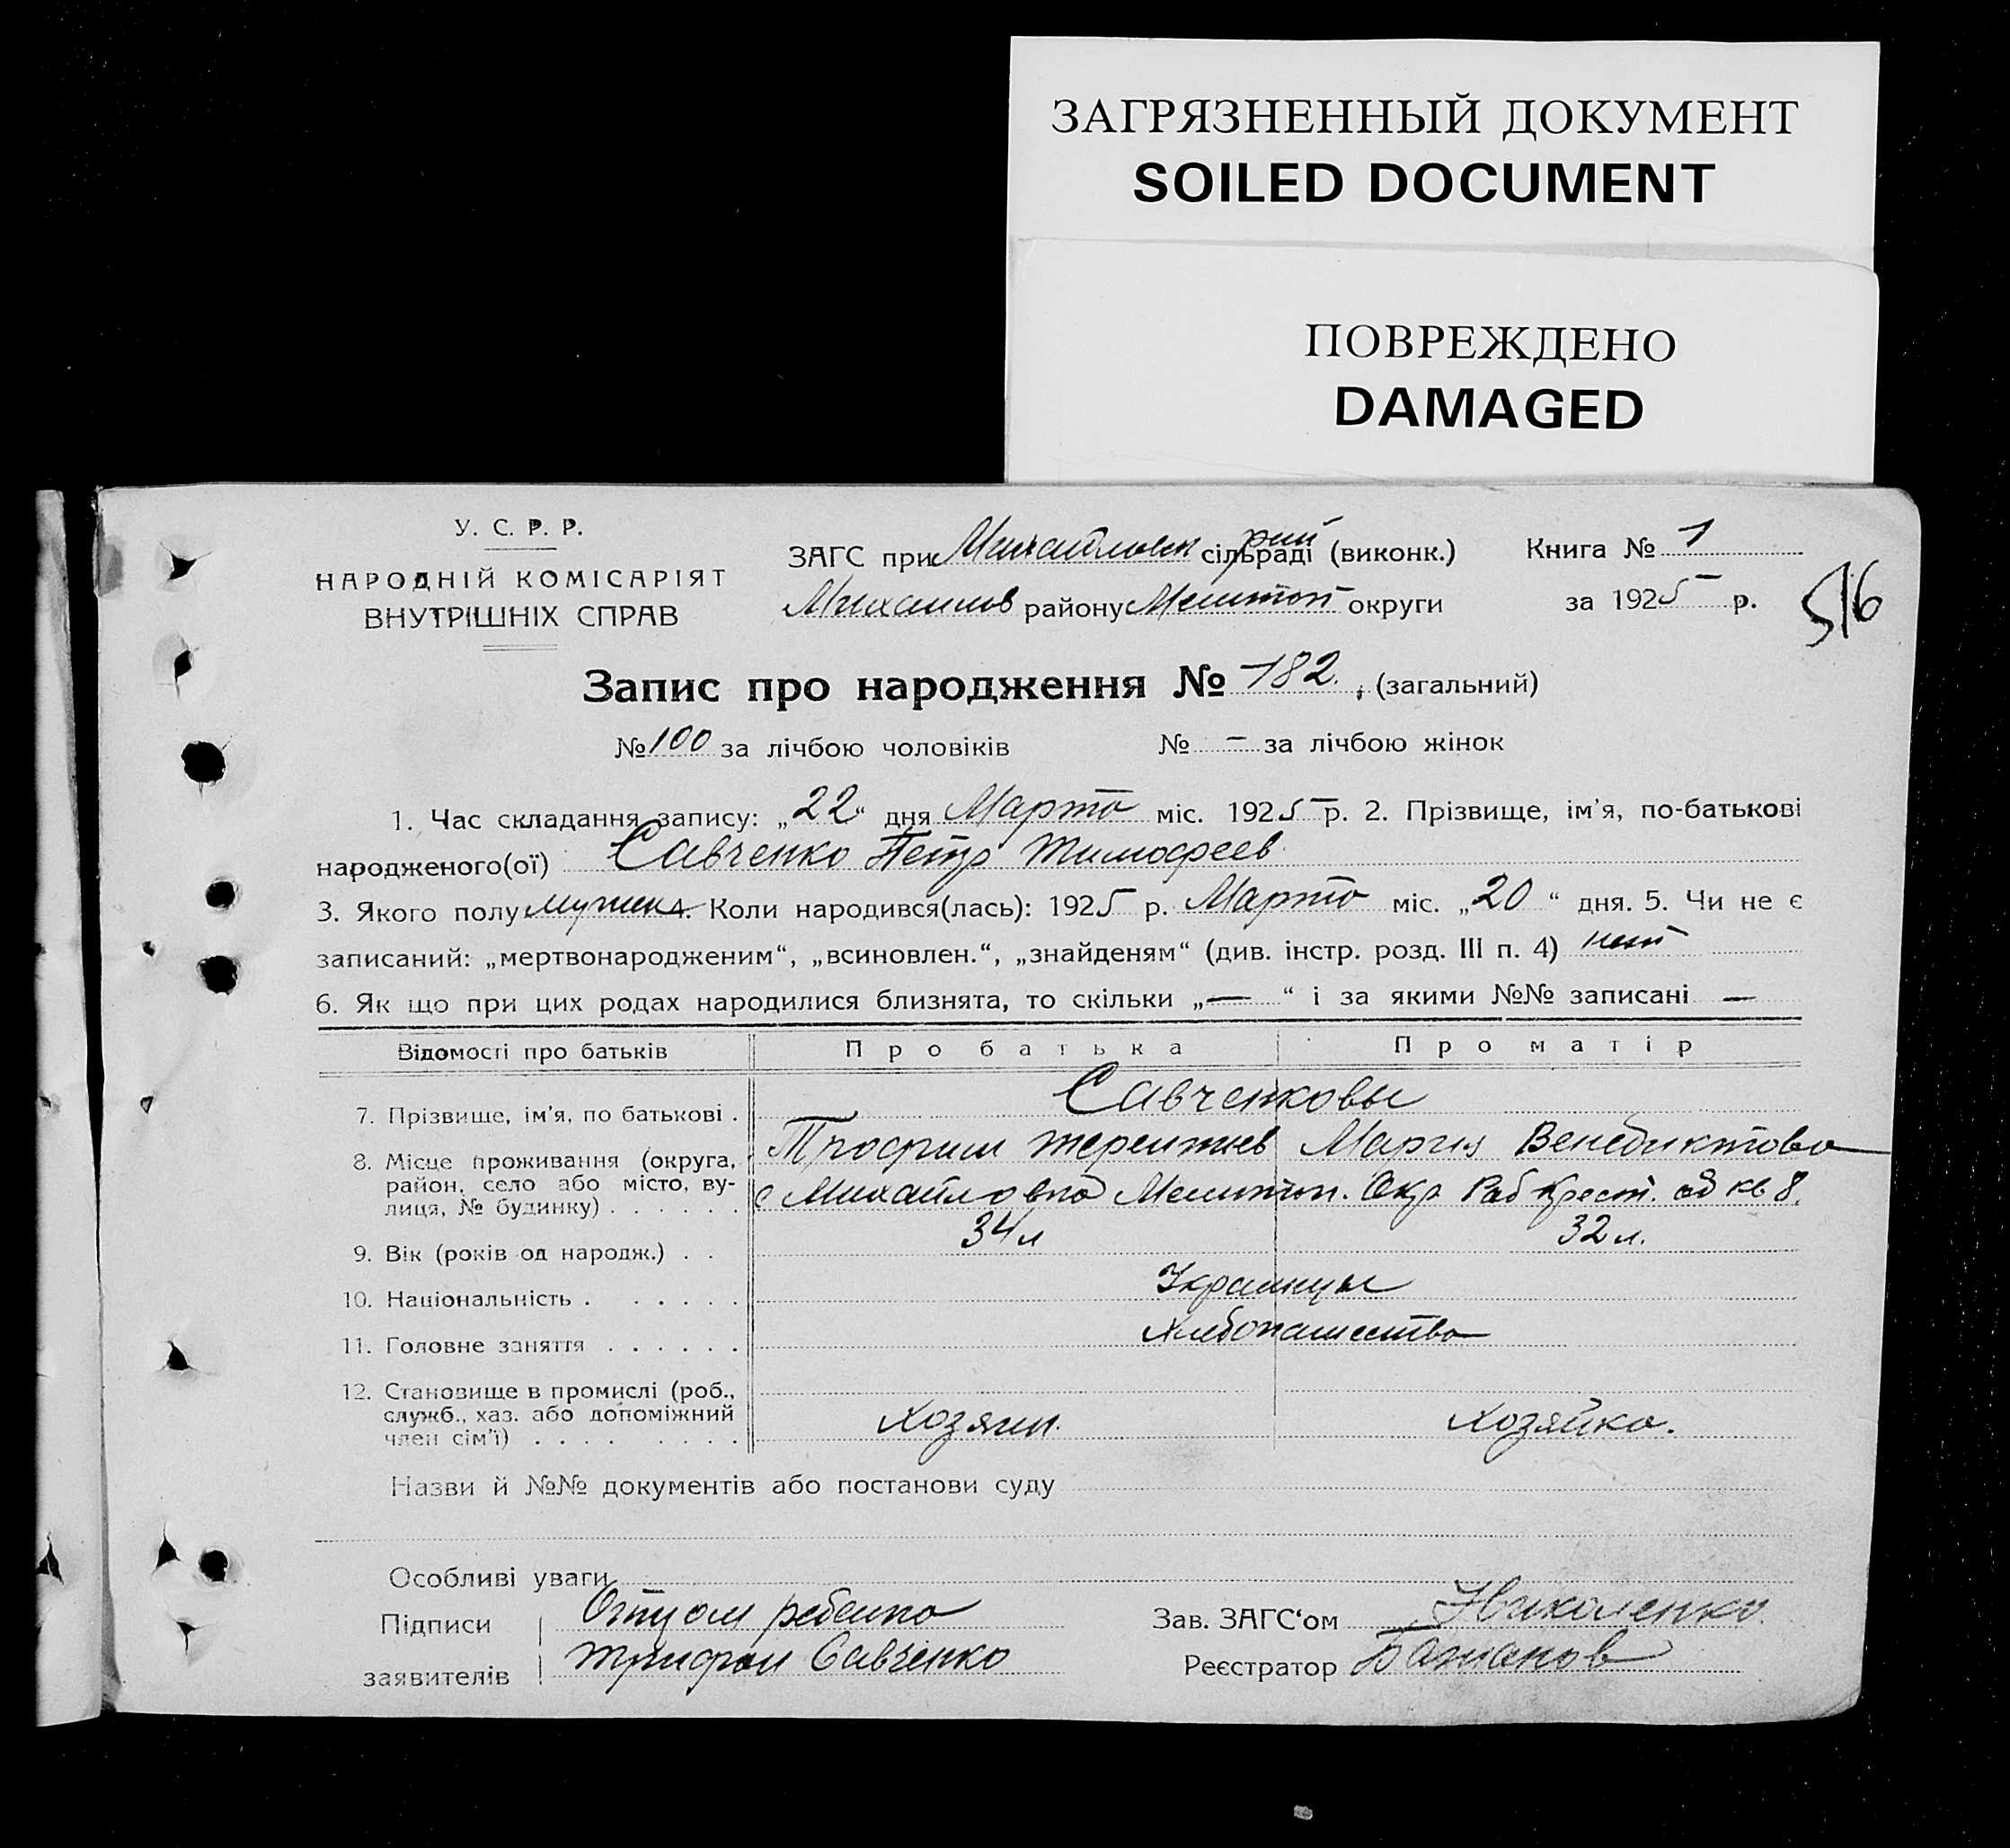 ЗАГРЯЗНЕННЫЙ ДОКУМЕНТ
SOILED DOCUMENT
ПОВРЕЖДЕНО
DAMAGED
У. С. Р. Р.
НАРОДНІЙ КОМІСАРІЯТ
ВНУТРІШНІХ СПРАВ
ЗАГС при Михайловск сільраді (виконк.)
Михайлов району Мелитоп округи
Книга № 1
за 1925 р.
516
Запис про народження № 182. , (загальний)
№ 100 за лічбою чоловіків № – за лічбою жінок
1. Час складання запису: „22“ дня Марта міс. 1925 р. 2. Прізвище, ім'я, по-батькові
народженого(ої) Савченко Петр Тимофеев
3. Якого полу мужск 4. Коли народився(лась): 1925 р. Марта міс. „20“ дня. 5. Чи не є
записаний: „мертвонародженим“, „всиновлен.“, „знайденям“ (див. інстр. розд. III п. 4) нет
6. Як що при цих родах народилися близнята, то скільки „—“ і за якими №№ записані —
Відомості про батьків Про батька Про матір
7. Прізвище, ім'я, по батькові . Савченковы
Трофим Терентиев Мария Венедиктова
8. Місце проживання (округа,
район, село або місто, ву-
лиця, № будинку) . . . . . .
с Михайловка Мелитоп. Окр Раб Крест. кв 8.
9. Вік (років од народж.) . . 34 л 32 л.
10. Національність . . . . . . Украинцы
11. Головне заняття . . . . . . Хлебопашество
12. Становище в промислі (роб.,
служб., хаз. або допоміжний
член сім'ї) . . . . . . . . Хозяин. Хозяйка.
Назви й №№ документів або постанови суду
Особливі уваги
Підписи Отцом ребенка
заявителів Савченко
Зав. ЗАГС'ом Николенко
Реєстратор Бажанов